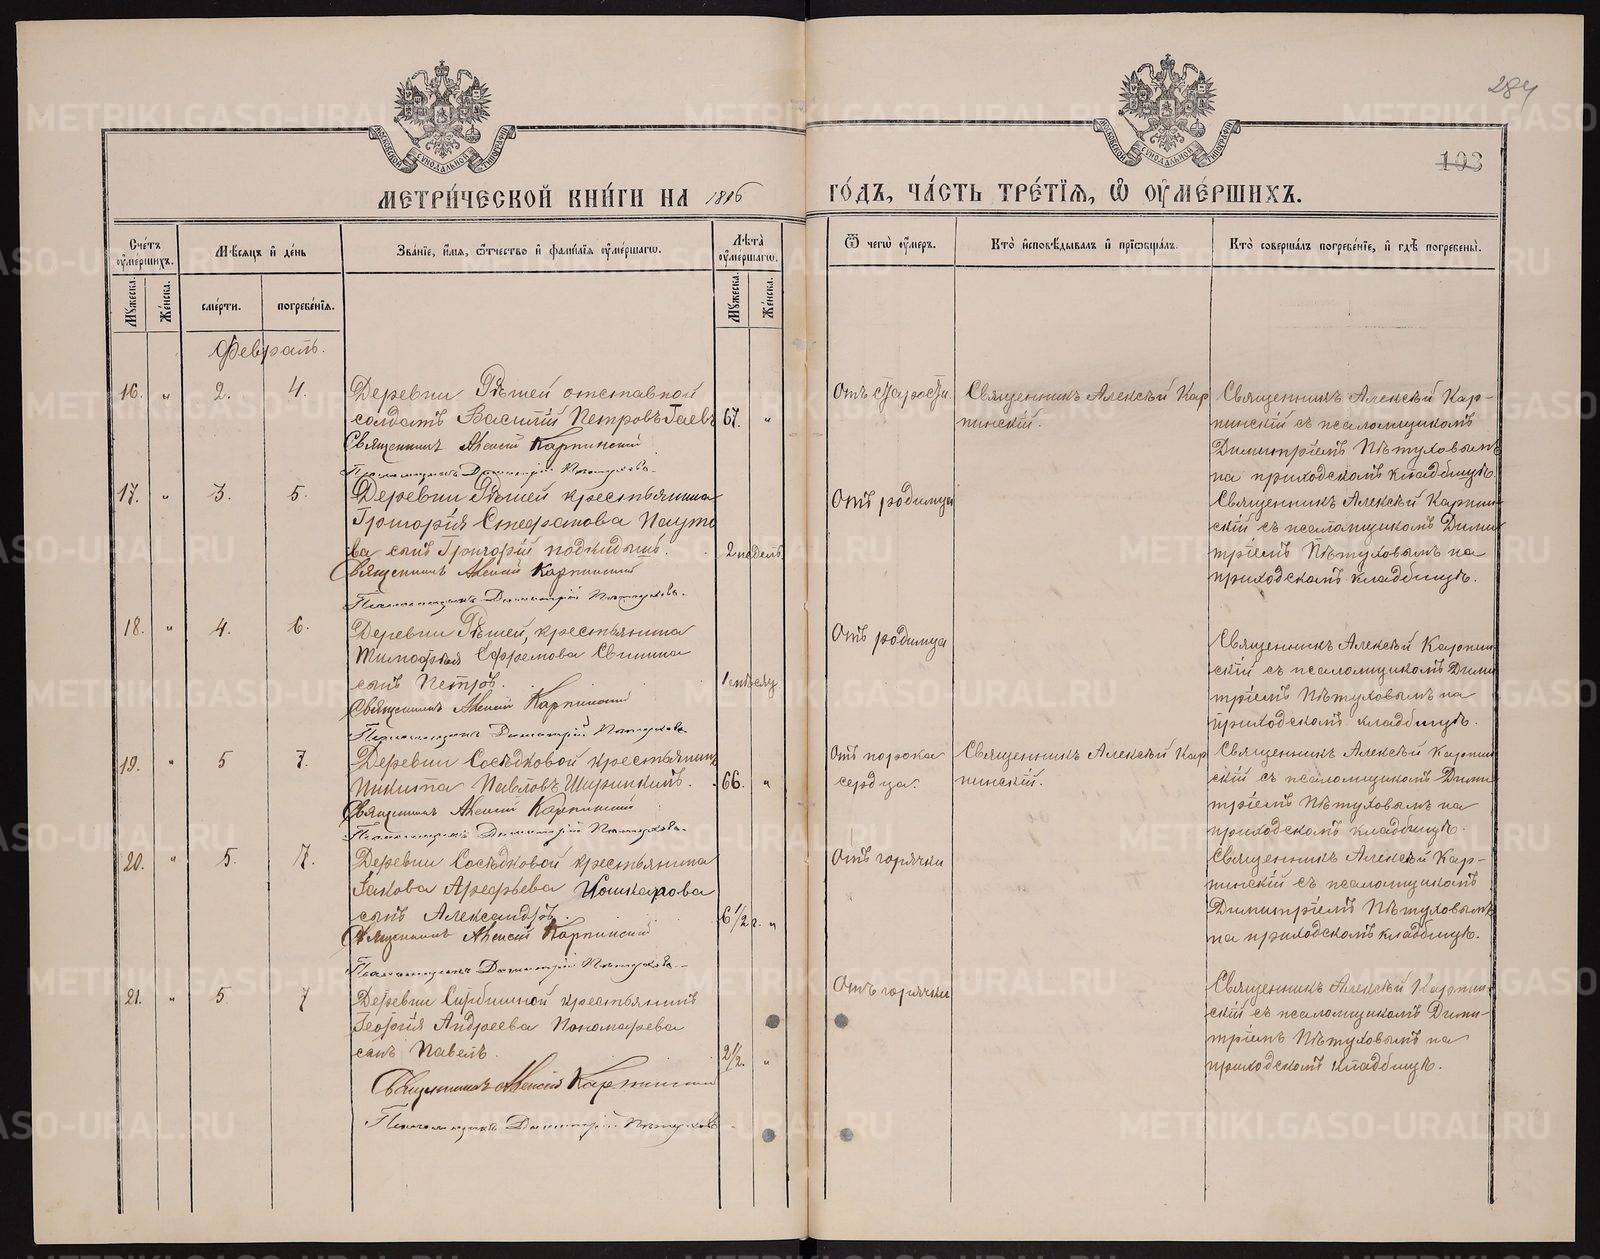 284
103
МЕТРИ́ЧЕСКОЙ КНИ́ГИ НА 1886
ГО́ДЪ, ЧА́СТЬ ТРЕ́ТІѦ, Ѡ҆ ОУ҆МЕ́РШИХЪ.
Сче́тъ оу҆ме́ршихъ.
Мѣ́сѧцъ и҆ де́нь
Зва́ніе, и҆́мѧ, ѻ҆́тчество и҆ фами́лїѧ оу҆ме́ршагѡ.
Лѣ́та оу҆ме́ршагѡ.
Ѿ чегѡ̀ оу҆́меръ.
Кто̀ и҆сповѣ́дывалъ и҆ прїѡбща́лъ.
Кто̀ соверша́лъ погребе́нїе, и҆ гдѣ̀ погребены̀.
Мꙋ́жеска.
Же́нска.
сме́рти.
погребе́нїѧ.
Мꙋ́жеска.
Же́нска.
Февраль.
16. " 2. 4.
Деревни Рѣшей отставной
солдатъ Василій Петровъ Гаевъ 67. "
Священникъ Алексій Карпинскій
Псаломщикъ Димитрій Пѣтуховъ.
Отъ старости.
Священникъ Алексѣй Кар
пинскій.
Священникъ Алексѣй Кар-
пинскій съ псаломщикомъ
Димитріемъ Пѣтуховымъ
на приходскомъ кладбищѣ.
17. " 3. 5.
Деревни Рѣшей крестьянина
Григорія Стефанова Пауто
ва сынъ Григорій подкидышъ. 2 недѣль
Священникъ Алексій Карпинскій
Псаломщикъ Димитрій Пѣтуховъ.
Отъ родимца
Священникъ Алексѣй Карпин
скій съ псаломщикомъ Дими
тріемъ Пѣтуховымъ на
приходскомъ кладбищѣ.
18. " 4. 6.
Деревни Рѣшей, крестьянина
Тимофея Ефремова Свинина
сынъ Петръ. 1 мѣсяц
Священникъ Алексій Карпинскій
Псаломщикъ Димитрій Пѣтуховъ
Отъ родимца
Священникъ Алексѣй Карпин
скій съ псаломщикомъ Дими
тріемъ Пѣтуховымъ на
приходскомъ кладбищѣ.
19. " 5 7.
Деревни Сосѣдковой крестьянинъ
Никита Павловъ Ширинкинъ. 66. "
Священникъ Алексій Карпинскій
Псаломщикъ Димитрій Пѣтуховъ.
Отъ порока
сердца.
Священникъ Алексѣй Кар
пинскій.
Священникъ Алексѣй Карпин
скій съ псаломщикомъ Дими
тріемъ Пѣтуховымъ на
приходскомъ кладбищѣ.
20. " 5. 7.
Деревни Сосѣдковой крестьянина
Іакова Арефьева Кошкарова
сынъ Александръ. 6 1/2 г. "
Священникъ Алексій Карпинскій
Псаломщикъ Димитрій Пѣтуховъ.
Отъ горячки
Священникъ Алексѣй Кар-
пинскій съ псаломщикомъ
Димитріемъ Пѣтуховымъ
на приходскомъ кладбищѣ.
21. " 5 7
Деревни крестьянинъ
Георгія Андреева Пономарева
сынъ Павелъ. 2 1/2. "
Священникъ Алексій Карпинскій
Псаломщикъ Димитрій Пѣтуховъ
Отъ горячки
Священникъ Алексѣй Карпин
скій съ псаломщикомъ Дими-
тріемъ Пѣтуховымъ на
приходскомъ кладбищѣ.
METRIKI.GASO-URAL.RU